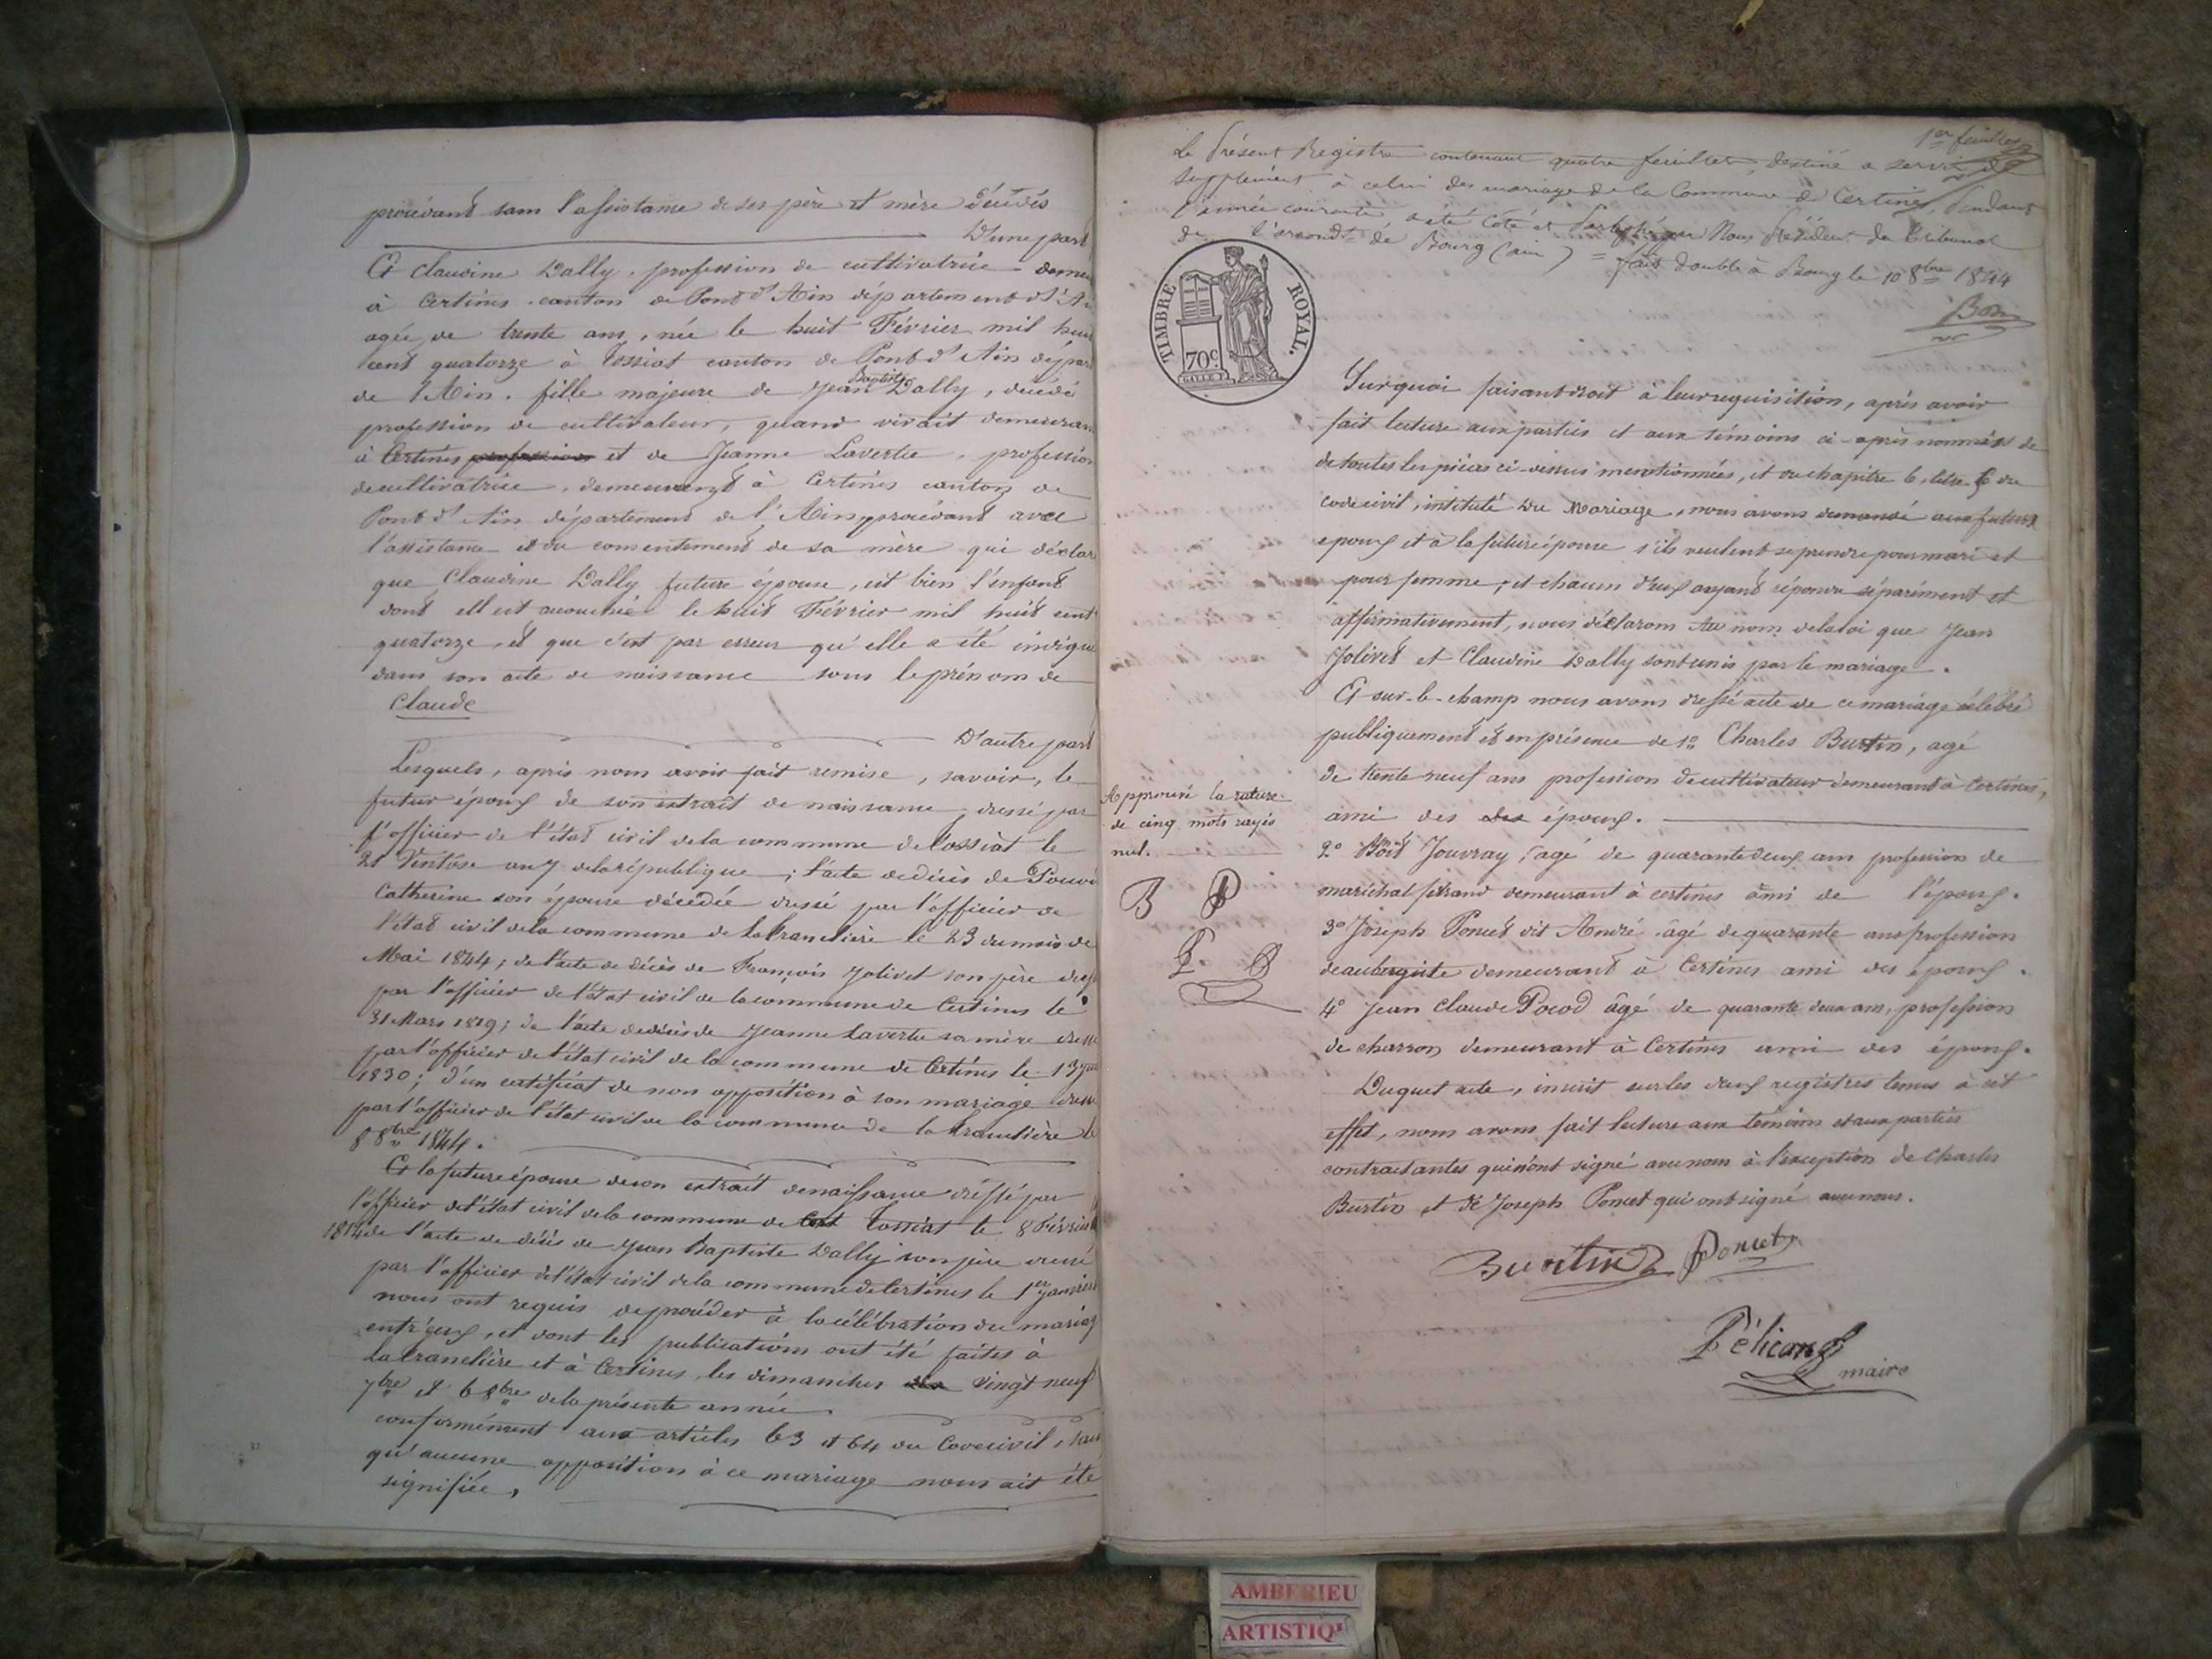 procédant sans l'assistance de ses père et mère décédés
D'une part
Et Claudine Dally, profession de cultivatrice demeu
à Certines canton de Pont d'Ain département d'l'Ai
agée de trente ans, née le huit Février mil hui
cent quatorze à Tossiat canton de Pont d'Ain dépar
de l'Ain. fille majeure de Jean Baptiste Dally, décédé
profession de cultivateur, quand vivait demeuran
à Certines profession et de Jeanne Lavertu, profession
de cultivatrice, demeurant à Certines canton de
Pont d'Ain département de l'Ain procédant avec
l'assistance et du consentement de sa mère qui déclare
que Claudine Dally future épouse, est bien l'enfant
dont elle est accouchée le huit Février mil huit cent
quatorze, et que c'est par erreur qu'elle a été indiqué
dans son acte de naissance sous le prénom de
Claude
D'autre part
Lesquels, après nous avoir fait remise, savoir, le
futur époux de son extrait de naissance, dressé par
l'officier de l'état civil de la commune de Tossiat le
21 Ventose an 7 de la république; l'acte de décès de
Catherine son épouse décédée dressé par l'officier de
l'état civil de la commune de la Tranclière le 23 du mois de
Mai 1844; de l'acte de décès de François Jolivet son père dress
par l'officier de l'état civil de la commune de Certines le
31 Mars 1819; de l'acte de décès de Jeanne Lavertu sa mère dressé
par l'officier de l'état civil de la commune de Certines le 13
1830; d'un certificat de non opposition à son mariage dress
par l'officier de l'état civil de la commune de la Tranclière le
8 8bre 1844.
Et la future épouse de son extrait de naissance dréssé par
l'officier de l'état civil de la commune de Tossiat le 8 Février
1814 de l'acte de décès de Jean Baptiste Dally son père dressé
par l'officier de l'état civil de la commune de Certines le 1er Janvier
nous ont requis de procéder à la célébration du mariag
entr'eux, et dont les publications ont été faites à
la Tranclière et à Certines, les dimanches vingt neuf
7bre et 6 8bre de la présente année
conformément aux articles 63 et 64 du Code civil, sans
qu'aucune opposition à ce mariage nous ait été
signifiée,
1er feuillet
Le Présent Registre contenant quatre feuillets, destiné a servir de
supplément à celui des mariage de la Commune de Certines, Pendant
l'année courante, a été Coté et Paraphé par Nous Président du Tribunal
de l'arrondt de Bourg (ain) = fait double à Bourg le 10 8bre 1844
TIMBRE ROYAL.
70c
Surquoi faisant droit à leur requisition, après avoir
fait lecture aux parties et aux témoins ci-après nommés de
de toutes les pièces ci-dessus mentionnées, et du chapitre 6, titre du
code civil, intitulé Du Mariage, nous avons demandé aux futurs
epoux et à la future épouse s'ils veulent se prendre pour mari et
pour femme; et chacun d'eux ayant répondu séparément et
affirmativement, nous déclarons au nom de la loi que Jean
Jolivet et Claudine Dally sont unis par le mariage.
Et sur-le-champ nous avons dressé acte de ce mariage célébré
publiquement et en présence de 1o Charles Burtin, agé
de trente neuf ans profession de cultivateur demeurant à Certines,
ami des des époux.
Approuvé la rature
de cinq mots rayés
nul.
B P
P. B
2o Boit Jouvray, agé de quarante deux ans profession de
maréchal férrand demeurant à certines ami de l'époux.
3o Joseph Poncet dit André âgé de quarante ans profession
de aubergiste demeurant à Certines ami des époux.
4o Jean Claude Pocod âgé de quarante deux ans, profession
de charron demeurant à Certines ami des époux.
Duquel acte, inscrit sur les deux registres tenus à cet
effet, nous avons fait lecture aux témoins et aux parties
contractantes qui n'ont signé avec nous à l'exception de Charles
Burtin et de Joseph Poncet qui ont signé avec nous.
Burtin Poncet
Pélicand
maire
AMBERIEU
ARTISTIQ